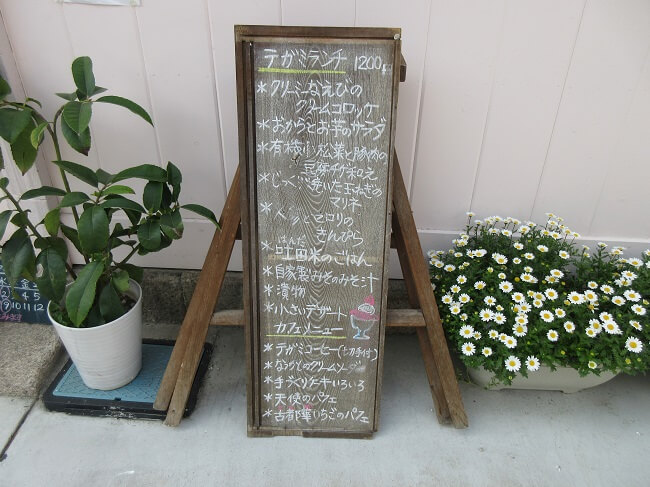 テガミランチ 1200円
*クリーミーなえびの
クリームコロッケ
*おからとお芋のサラダ
*有機小松菜と豚肉の
豆腐チゲ和え
*じっくり焼いた玉ねぎの
マリネ
セロリの
きんぴら
はんだ
*半田米のごはん
*自家製みそのみそ汁
*漬物
*小さいデザート
カフェメニュー
*テガミコーヒー
*なつかしのクリームソーダ
*手づくりケーキいろいろ
*天使のパフェ
*古都華いちごのパフェ
水 金
4 5
9 10 11 12